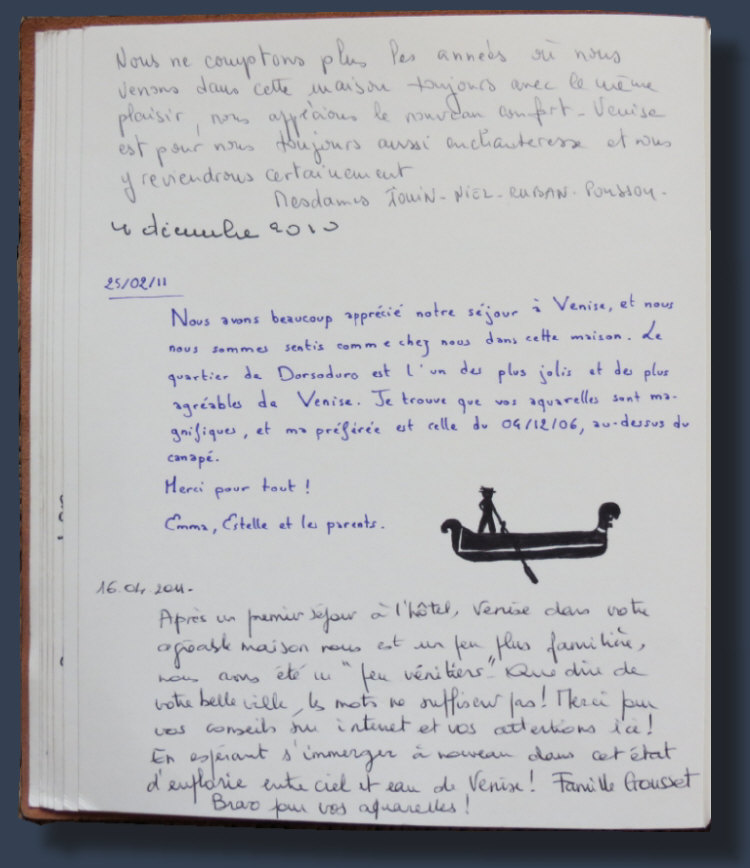 Nous ne comptons plus les années où nous
venons dans cette maison toujours avec le même
plaisir, nous apprécions le nouveau confort - Venise
est pour nous toujours aussi enchanteresse et nous
y reviendrons certainement
Mesdames JOUIN - NIEL -
4 décembre 2010
25/02/11
Nous avons beaucoup apprécié notre séjour à Venise, et nous
nous sommes sentis comme chez nous dans cette maison. Le
quartier de Dorsoduro est l'un des plus jolis et des plus
agréables de Venise. Je trouve que vos aquarelles sont ma-
gnifiques, et ma préférée est celle du 04/12/06, au-dessus du
canapé.
Merci pour tout !
Emma, Estelle et les parents.
16.04.2011-
Après un premier séjour à l'hôtel, Venise dans votre
agréable maison nous est un peu plus familière,
nous avons été un "peu vénitiens". Que dire de
votre belle ville, les mots ne suffisent pas ! Merci pour
vos conseils sur internet et vos attentions ici !
En espérant s'immerger à nouveau dans cet état
d'euphorie entre ciel et eau de Venise ! Famille Gousset
Bravo pour vos aquarelles !